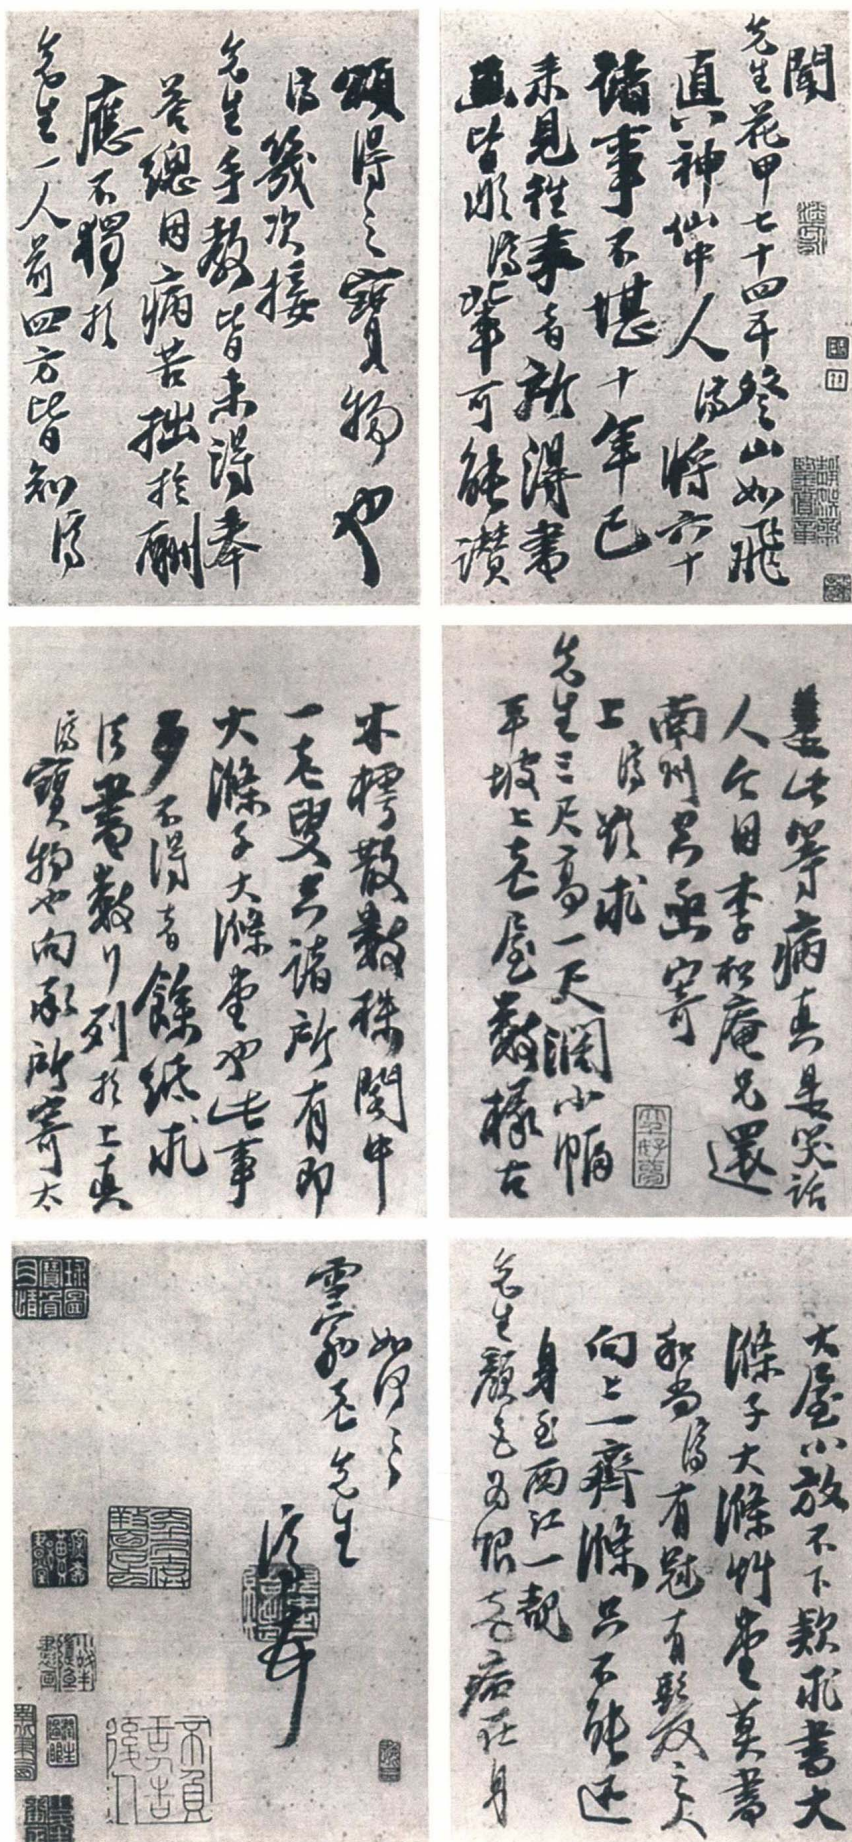 聞
先生花甲七十四五登山如飛
真神仙中人濟將六十
諸事不堪十年已
來見往事者所得書
畫皆非濟輩可能讚
頌得之寶物也
濟幾次接
先生手教皆未得奉
答總因病苦拙於酬
應不獨於
先生一人前四方皆知濟
此等病真是笑話
人今因李松庵兄還
南州空函寄
上濟欲求
先生三尺高一尺濶小幅
平坡上老屋數椽古
木樗散數株閣中
一老叟空諸所有即
大滌子大滌堂也此事
少不得者餘紙求
法書數行列於上真
濟寶物也向承所寄太
大屋小放不下款求書大
滌子大滌草堂莫書
和尚濟有冠有髮之人
向上一齊滌只不能還
身至西江一覩
先生顏色為恨老病在身
如何如何
雪翁老先生
濟頓首